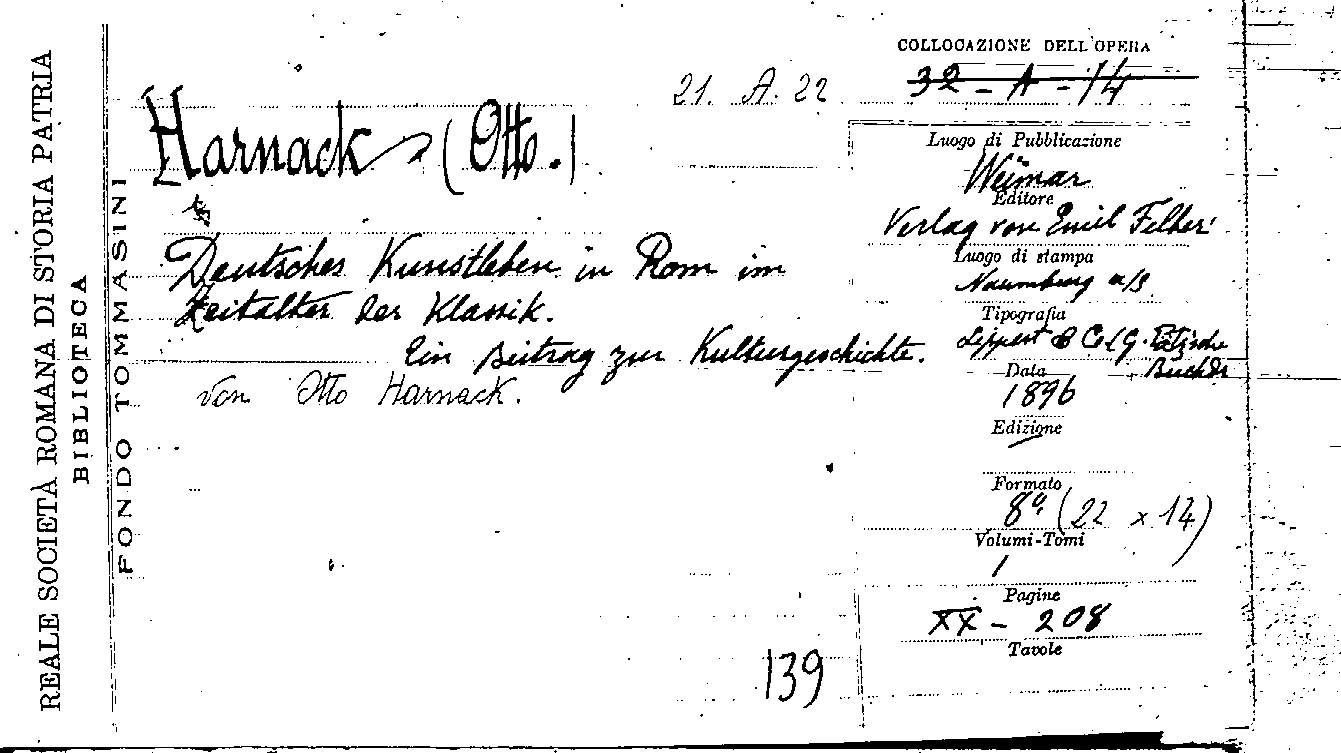 REALE SOCIETÀ ROMANA DI STORIA PATRIA
BIBLIOTECA
FONDO TOMMASINI
21. A. 22
Harnack (Otto.)
Deutsches Kunstleben in Rom im
Zeitalter der Klassik.
Ein Beitrag zur Kulturgeschichte.
von Otto Harnack.
139
COLLOCAZIONE DELL'OPERA
32 - A - 14
Luogo di Pubblicazione
Weimar
Editore
Verlag von Emil Felber
Luogo di stampa
Naumburg a/S
Tipografia
Lippert & C. (G. Pätz'sche
Buchdr
Data
1896
Edizione
Formato
8º (22 x 14)
Volumi-Tomi
1
Pagine
XX - 208
Tavole